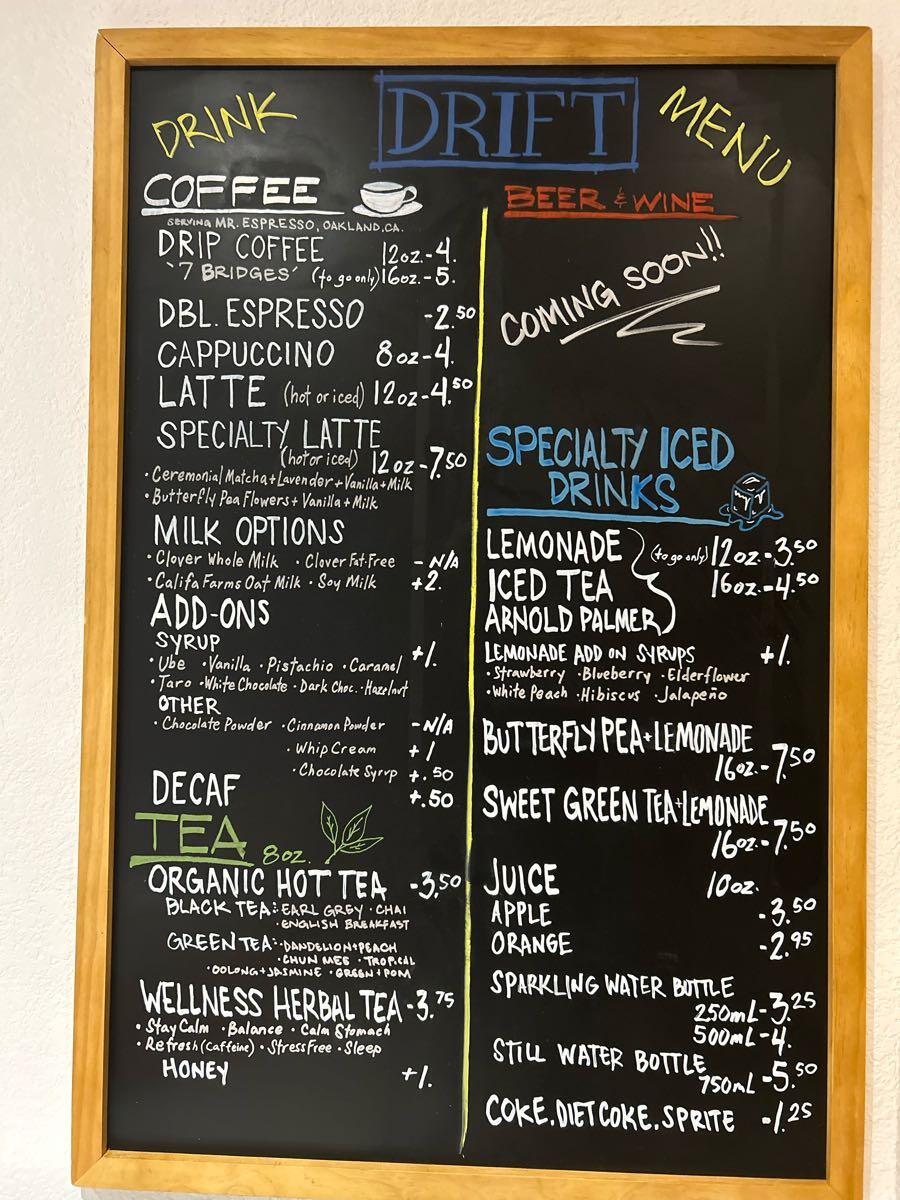 DRINK
DRIFT
MENU
COFFEE
SERVING MR. ESPRESSO, OAKLAND, CA.
DRIP COFFEE 12oz.-4.
'7 BRIDGES' (to go only) 16oz.-5.
DBL. ESPRESSO -2.50
CAPPUCCINO 8oz-4.
LATTE (hot or iced) 12oz-4.50
SPECIALTY LATTE
(hot or iced) 12oz-7.50
·Ceremonial Matcha+Lavender+Vanilla+Milk
·Butterfly Pea Flowers+Vanilla+Milk
MILK OPTIONS
·Clover Whole Milk ·Clover Fat-Free -N/A
·Califa Farms Oat Milk ·Soy Milk +2.
ADD-ONS
SYRUP +1.
·Ube ·Vanilla ·Pistachio ·Caramel
·Taro ·White Chocolate ·Dark Choc. ·Hazelnut
OTHER
·Chocolate Powder ·Cinnamon Powder -N/A
·Whip Cream +1
·Chocolate Syrup +.50
DECAF +.50
TEA 8oz.
ORGANIC HOT TEA -3.50
BLACK TEA: ·EARL GREY ·CHAI
·ENGLISH BREAKFAST
GREEN TEA: ·DANDELION+PEACH
·CHUN MEE ·TROPICAL
·OOLONG+JASMINE ·GREEN+POM
WELLNESS HERBAL TEA -3.75
·Stay Calm ·Balance ·Calm Stomach
·Refresh (Caffeine) ·Stress Free ·Sleep
HONEY +1.
BEER & WINE
COMING SOON!!
SPECIALTY ICED
DRINKS
LEMONADE (to go only) 12oz.-3.50
ICED TEA 16oz.-4.50
ARNOLD PALMER
LEMONADE ADD ON SYRUPS +1.
·Strawberry ·Blueberry ·Elderflower
·White Peach ·Hibiscus ·Jalapeño
BUTTERFLY PEA+LEMONADE
16oz.-7.50
SWEET GREEN TEA+LEMONADE
16oz.-7.50
JUICE 10oz.
APPLE -3.50
ORANGE -2.95
SPARKLING WATER BOTTLE
250mL-3.25
500mL-4.
STILL WATER BOTTLE
750mL-5.50
COKE, DIET COKE, SPRITE -1.25